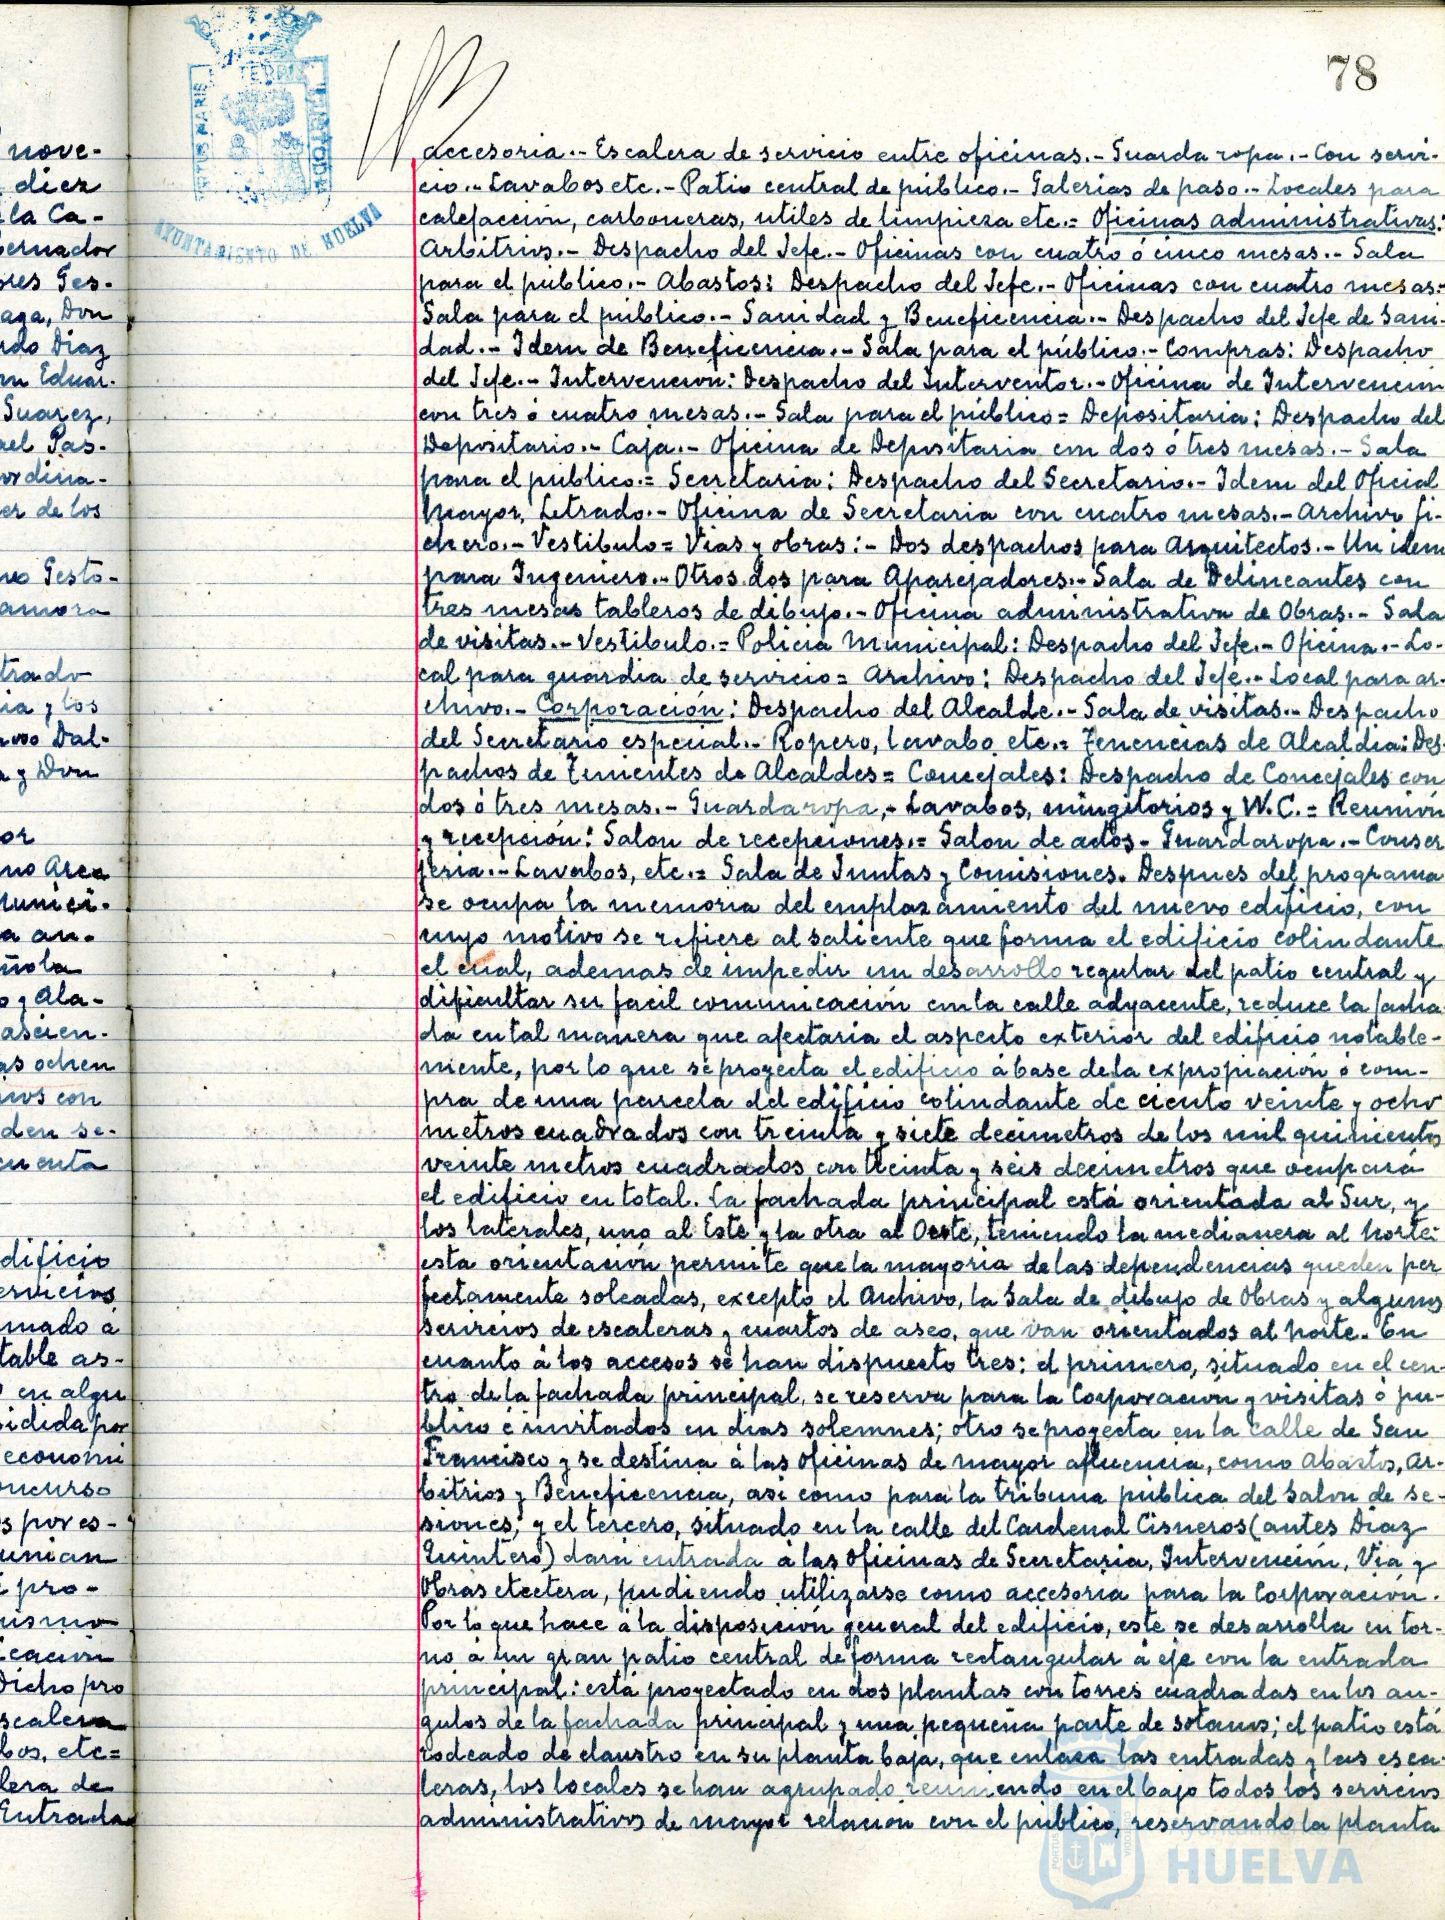 78
PORTUS MARIS ET TERRAE CUSTODIA
AYUNTAMIENTO DE HUELVA
nove-
diez
la Ca-
bernador
ores Ges-
aga, Don
rdo Diaz
Eduar-
Suarez,
ael Pas-
ordina-
er de los
Gesto-
amora
trado
ia y los
Dal-
a y Don
or
no Area
Munici-
a an-
ñola
o y Ala-
ascien-
as ochen
con
den se-
cuenta
dificio
ervicios
mado á
table as-
en algu
sidida por
economi
oncurso
s por es-
unian
pro-
mismo
icación
Dicho pro
scalera
bos, etc=
lera de
Entrada
accesoria.- Escalera de servicio entre oficinas.- Guarda ropa.- Con servi-
cio.- Lavabos etc.- Patio central de público.- Galerias de paso.- Locales para
calefacción, carboneras, utiles de limpieza etc.= Oficinas administrativas:
Arbitrios.- Despacho del Jefe.- Oficinas con cuatro ó cinco mesas.- Sala
para el público.- Abastos: Despacho del Jefe.- Oficinas con cuatro mesas.-
Sala para el público.- Sanidad y Beneficencia.- Despacho del Jefe de Sani-
dad.- Idem de Beneficencia.- Sala para el público.- Compras: Despacho
del Jefe.- Intervencion: Despacho del Interventor.- Oficina de Intervencion
con tres ó cuatro mesas.- Sala para el público= Depositaria: Despacho del
Depositario.- Caja.- Oficina de Depositaria con dos ó tres mesas.- Sala
para el publico.= Secretaria: Despacho del Secretario.- Idem del Oficial
Mayor, Letrado.- Oficina de Secretaria con cuatro mesas.- Archivo fi-
chero.- Vestibulo= Vias y obras:- Dos despachos para Arquitectos.- Un idem
para Ingeniero.- Otros dos para Aparejadores.- Sala de Delineantes con
tres mesas tableros de dibujo.- Oficina administrativa de Obras.- Sala
de visitas.- Vestibulo.= Policia Municipal: Despacho del Jefe.- Oficina.- Lo-
cal para guardia de servicio= Archivo: Despacho del Jefe.- Local para ar-
chivo.- Corporación: Despacho del Alcalde.- Sala de visitas.- Despacho
del Secretario especial.- Ropero, lavabo etc.= Tenencias de Alcaldia: Des-
pachos de Tenientes de Alcaldes= Concejales: Despacho de Concejales con
dos ó tres mesas.- Guardaropa,- Lavabos, mingitorios y W.C.= Reunión
y recepción: Salon de recepciones.= Salon de actos- Guardaropa.- Conser
jeria.- Lavabos, etc.= Sala de Juntas y Comisiones. Despues del programa
se ocupa la memoria del emplazamiento del nuevo edificio, con
cuyo motivo se refiere al saliente que forma el edificio colindante
el cual, ademas de impedir un desarrollo regular del patio central y
dificultar su facil comunicación con la calle adyacente, reduce la facha
da en tal manera que afectaria el aspecto exterior del edificio notable-
mente, por lo que se proyecta el edificio á base de la expropiación ó com-
pra de una parcela del edificio colindante de ciento veinte y ocho
metros cuadrados con treinta y siete decimetros de los mil quinientos
veinte metros cuadrados con treinta y seis decimetros que ocupará
el edificio en total. La fachada principal está orientada al Sur, y
los laterales, uno al Este y la otra al Oeste, teniendo la medianera al Norte:
esta orientación permite que la mayoria de las dependencias queden per
fectamente soleadas, excepto el Archivo, la Sala de dibujo de Obras y algunos
servicios de escaleras y cuartos de aseo, que van orientados al norte. En
cuanto á los accesos se han dispuesto tres: el primero, situado en el cen-
tro de la fachada principal, se reserva para la Corporacion y visitas ó pu-
blico é invitados en dias solemnes; otro se proyecta en la calle de San
Francisco y se destina á las oficinas de mayor afluencia, como Abastos, Ar-
bitrios y Beneficencia, asi como para la tribuna pública del Salon de se-
siones; y el tercero, situado en la calle del Cardenal Cisneros (antes Diaz
Quintero) dará entrada á las oficinas de Secretaria, Intervención, Via y
Obras etcetera, pudiendo utilizarse como accesoria para la Corporación.
Por lo que hace á la disposición general del edificio, este se desarrolla en tor-
no á un gran patio central de forma rectangular á eje con la entrada
principal: está proyectado en dos plantas con torres cuadradas en los an-
gulos de la fachada principal y una pequeña parte de sotanos; el patio está
rodeado de claustro en su planta baja, que enlaza las entradas y las esca-
leras, los locales se han agrupado reuniendo en el bajo todos los servicios
administrativos de mayor relación con el público, reservando la planta
HUELVA